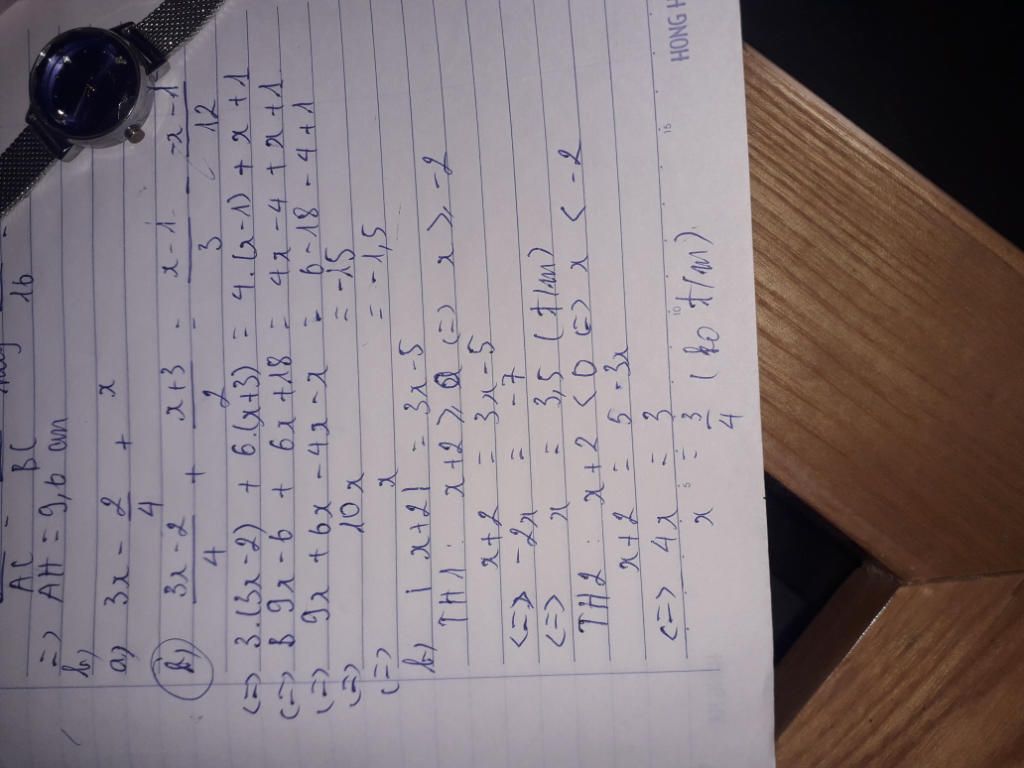 AC BC 16
=> AH = 9,6 cm
b)
a) 3x - 2 + x
4
b) 3x - 2 / 4 + x + 3 / 2 - x - 1 / 3 - -x - 1 / 12
<=> 3.(3x - 2) + 6.(x + 3) = 4.(x - 1) + x + 1
<=> 9x - 6 + 6x + 18 = 4x - 4 + x + 1
<=> 9x + 6x - 4x - x = 6 - 18 - 4 + 1
<=> 10x = -15
<=> x = -1,5
b) |x + 2| = 3x - 5
TH1: x + 2 ⩾ 0 <=> x ⩾ -2
x + 2 = 3x - 5
<=> -2x = -7
<=> x = 3,5 (t/m)
TH2: x + 2 < 0 <=> x < -2
x + 2 = 5 - 3x
<=> 4x = 3
x = 3/4 (ko t/m)
5 10 15
HONG H